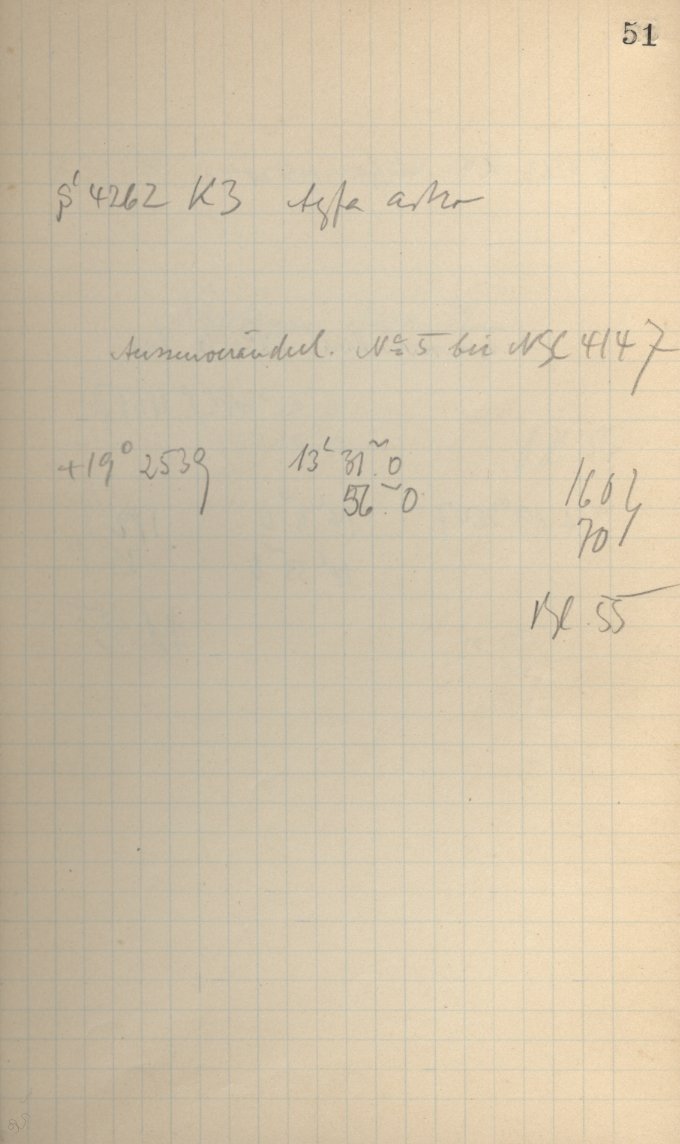 51
4262 K3 Agfa astro
Aussenveränderl. No 5 bei NGC 4147
+19° 2539 13h 31m.0 160
56m.0 70
Bl. 55